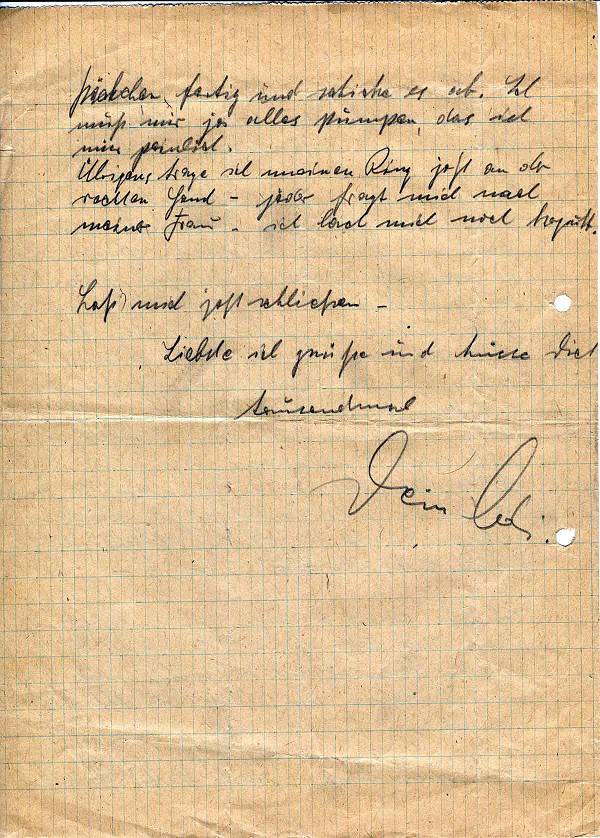 Päckchen fertig und schicke es ab. Ich
muß mir ja alles pumpen, das ist
mir peinlich.
Übrigens trage ich meinen Ring jetzt an der
rechten Hand – jeder fragt mich nach
meiner Frau – ich lach mich noch kaputt.
Laß mich jetzt schließen –
Liebste ich grüße und küsse Dich
tausendmal
Dein